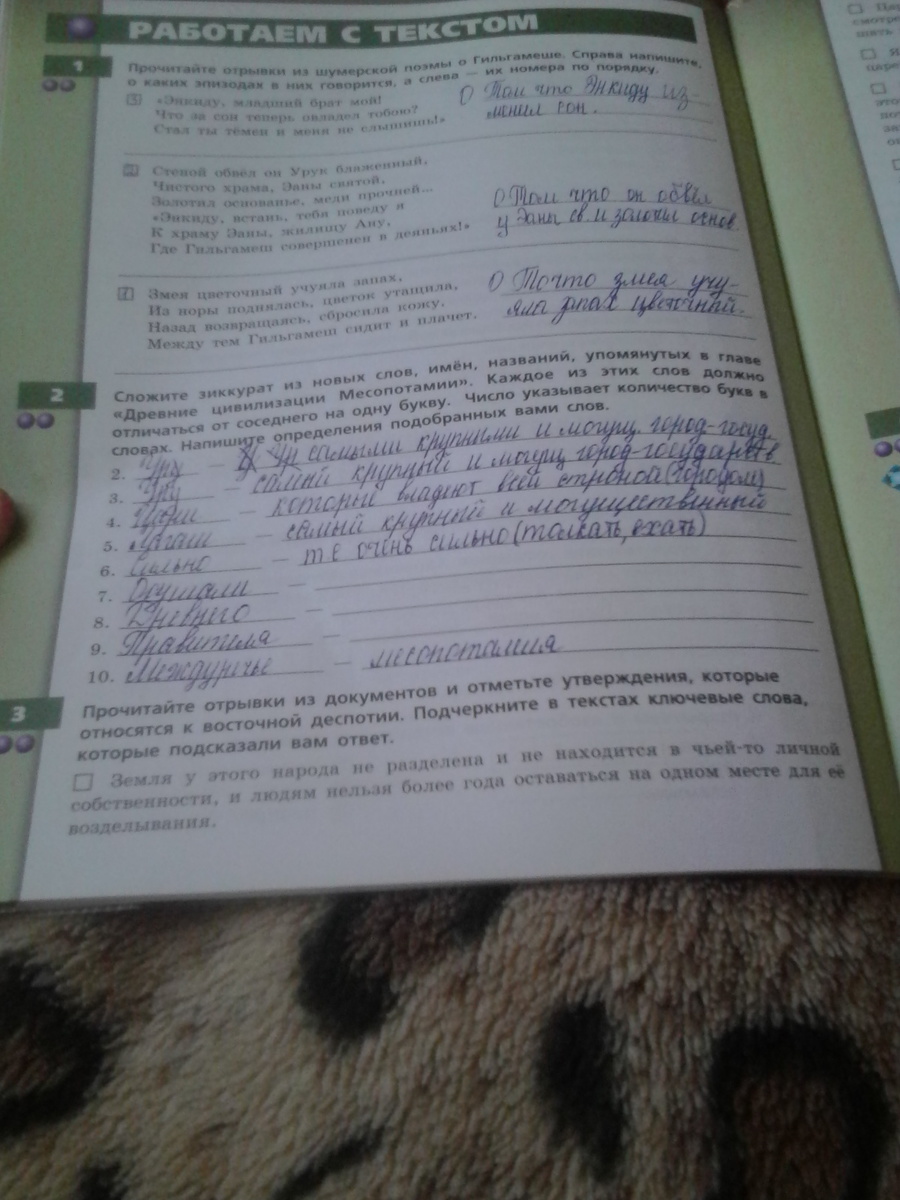 РАБОТАЕМ С ТЕКСТОМ
1
Прочитайте отрывки из шумерской поэмы о Гильгамеше. Справа напишите,
о каких эпизодах в них говорится, а слева — их номера по порядку.
«Энкиду, младший брат мой!
Что за сон теперь овладел тобою?
Стал ты тёмен и меня не слышишь!»
О Том что Энкиду из-
менил сон.
Стеной обвёл он Урук блаженный,
Чистого храма, Эаны святой,
Золотил основанье, меди прочней...
«Энкиду, встань, тебя поведу я
К храму Эаны, жилищу Ану,
Где Гильгамеш совершенен в деяньях!»
О Том что он обвёл
у Эаны св. и золотил основ.
Змея цветочный учуяла запах,
Из норы поднялась, цветок утащила,
Назад возвращаясь, сбросила кожу.
Между тем Гильгамеш сидит и плачет.
О То что змея учу-
яла запах цветочный.
2
Сложите зиккурат из новых слов, имён, названий, упомянутых в главе
«Древние цивилизации Месопотамии». Каждое из этих слов должно
отличаться от соседнего на одну букву. Число указывает количество букв в
словах. Напишите определения подобранных вами слов.
2. – самыми крупными и могущ. город-госуд.
3. – самый крупный и могущ город-государств
4. Цари – который владеют всей страной (городом)
5. Лагаш – самый крупный и могущественный
6. Сильно – те очень сильно (толкать, ехать)
7. Осушали –
8. Древнего –
9. Правителя –
10. Междуречье – месопотамия
3
Прочитайте отрывки из документов и отметьте утверждения, которые
относятся к восточной деспотии. Подчеркните в текстах ключевые слова,
которые подсказали вам ответ.
Земля у этого народа не разделена и не находится в чьей-то личной
собственности, и людям нельзя более года оставаться на одном месте для её
возделывания.